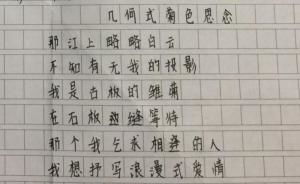 几何式菊色思念
那江上略略白云
不知有无我的投影
我是古板的雏菊
在石板缝等待
那个我乞求相逢的人
我想抒写浪漫式爱情